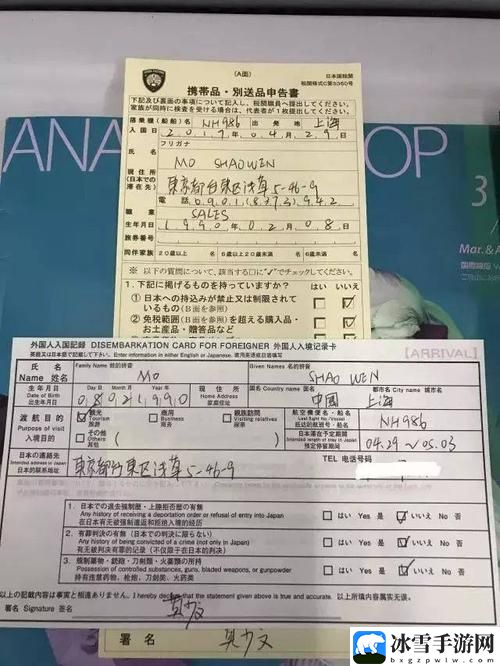 (A面)
日本国税関
税関様式C第5360号
携帯品・別送品申告書
下記及び裏面の事項について記入し、税関職員へ提出してください。
家族が同時に検査を受ける場合は、代表者が1枚提出してください。
搭乗機(船舶)名 NH986 出発地 上海
入国日 2017年04月29日
フリガナ
氏名 MO SHAOWEN
現住所
(日本での
滞在先)
東京都台東区浅草5-46-9
電話 090 1(8373)942
職業 SALES
生年月日 1990年02月08日
旅券番号
同伴家族 20歳以上 名 6歳以上20歳未満 名 6歳未満 名
※ 以下の質問について、該当する□に"✓"でチェックしてください。
1. 下記に掲げるものを持っていますか? はい いいえ
① 日本への持込みが禁止又は制限されて
いるもの(B面を参照)
② 免税範囲(B面を参照)を超える購入品・
お土産品・贈答品など
ANA
OP
3
Mar.&A
国際線版
外国人入国記録 DISEMBARKATION CARD FOR FOREIGNER 外国人入境记录卡
[ARRIVAL]
英語又は日本語で記載して下さい。 Enter information in either English or Japanese. 请用英语或日语填写
氏名
Name 姓名
Family Name 姓的拼音 MO
Given Names 名的拼音 SHAO WEN
生年月日
Date of Birth
出生日期
Day 日 Month 月 Year 年
08021990
現住所
Home Address
家庭住址
国名 Country name 国名 中国
都市名 City name 城市名 上海
渡航目的
Purpose of visit
入境目的
観光
Tourism
旅游
商用
Business
商务
親族訪問
Visiting relatives
探亲
その他
Others
其他
航空機便名・船名
Last flight No./Vessel
抵达的航班号・船名
NH986
日本滞在予定期間
Intended length of stay in Japan
预定停留期间
04.29~05.03
日本の連絡先
Intended address in Japan
日本的联系地址
東京都台東区浅草5-46-9
TEL 电话号码
1. 日本での退去強制歴・上陸拒否歴の有無
Any history of receiving a deportation order or refusal of entry into Japan
在日本有无被强制遣返和拒绝入境的经历
□ はい Yes 是 ☑ いいえ No 否
2. 有罪判決の有無 (日本での判決に限らない)
Any history of being convicted of a crime (not only in Japan)
有无被判决有罪的记录 (不仅限于在日本的判决)
□ はい Yes 是 ☑ いいえ No 否
3. 規制薬物・銃砲・刀剣類・火薬類の所持
Possession of controlled substances, guns, bladed weapons, or gunpowder
持有违禁药物、枪炮、刀剑类、火药类
□ はい Yes 是 ☑ いいえ No 否
以上の記載内容は事実と相違ありません。 I hereby declare that the statement given above is true and accurate. 以上填写内容属实无误。
署名 Signature 签名 莫少文
署名 莫少文
冰雪手游网
bxgzpwlw.com